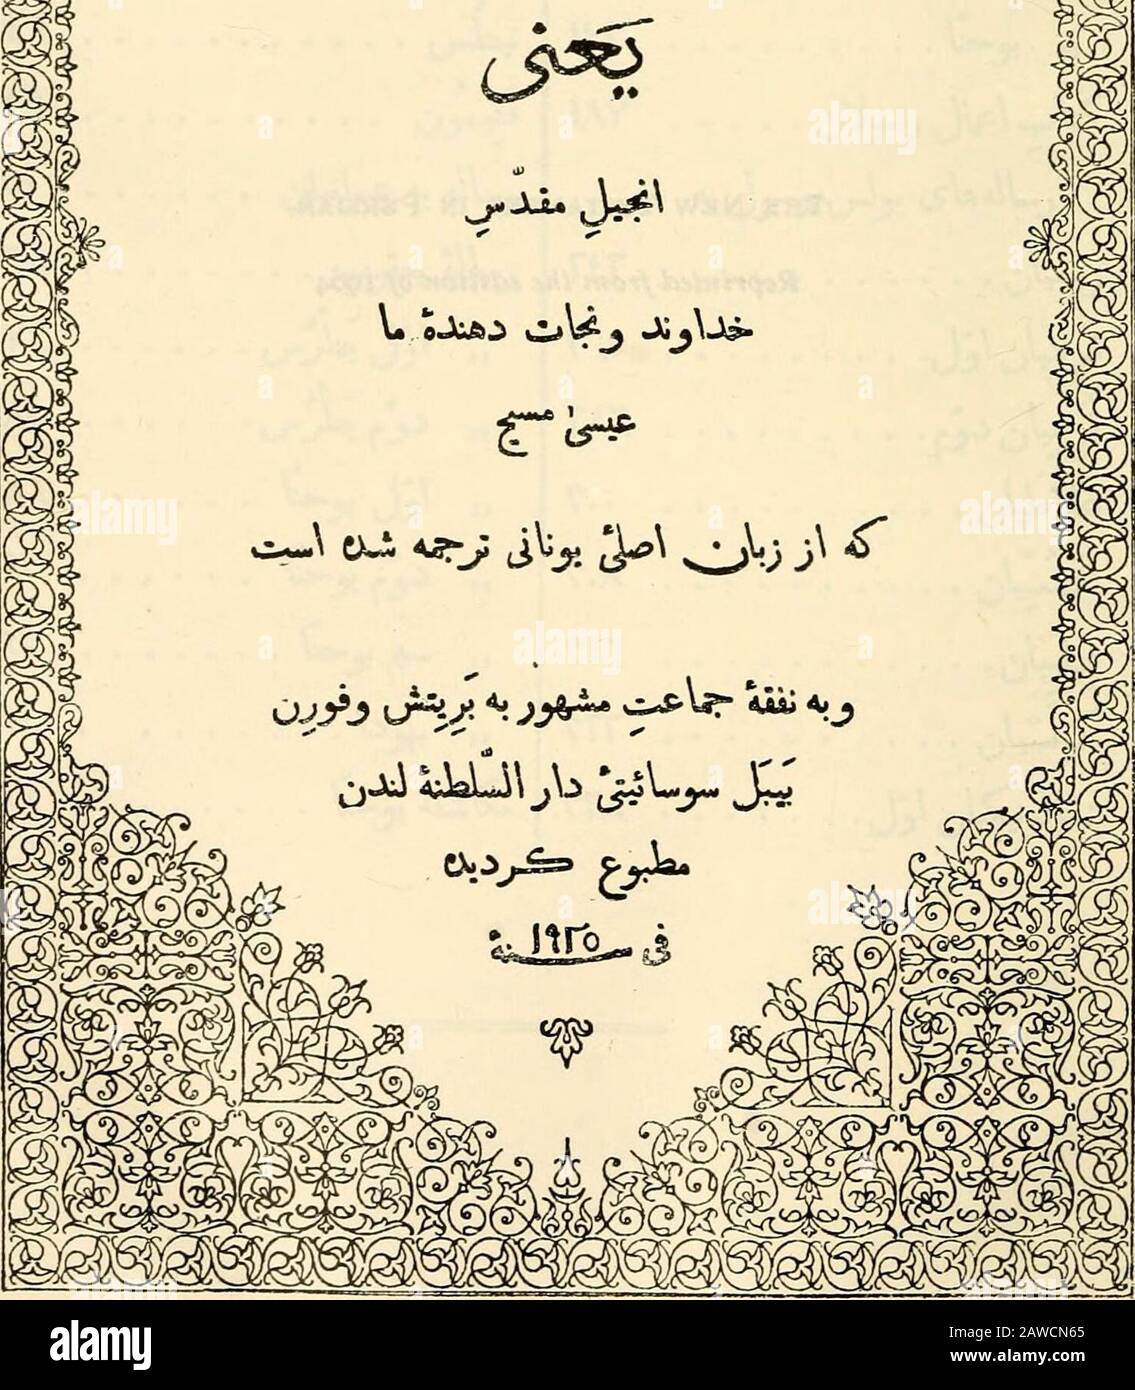 یَعنی
انجیلِ مقدّسِ
خداوند ونجات دهندهٔ ما
عیسیٰ مسیح
که از زبان اصلیٔ یونانی ترجمه شده است
وبه نفقهٔ جماعتِ مشهور به بَرِیتِش وفورِن
بَیبَل سوسائیتیٔ دار السَّلطنهٔ لندن
مطبوع کردیده
فی سنهٔ ۱۹۲۵
alamy
Image ID: 2AWCN65
www.alamy.com